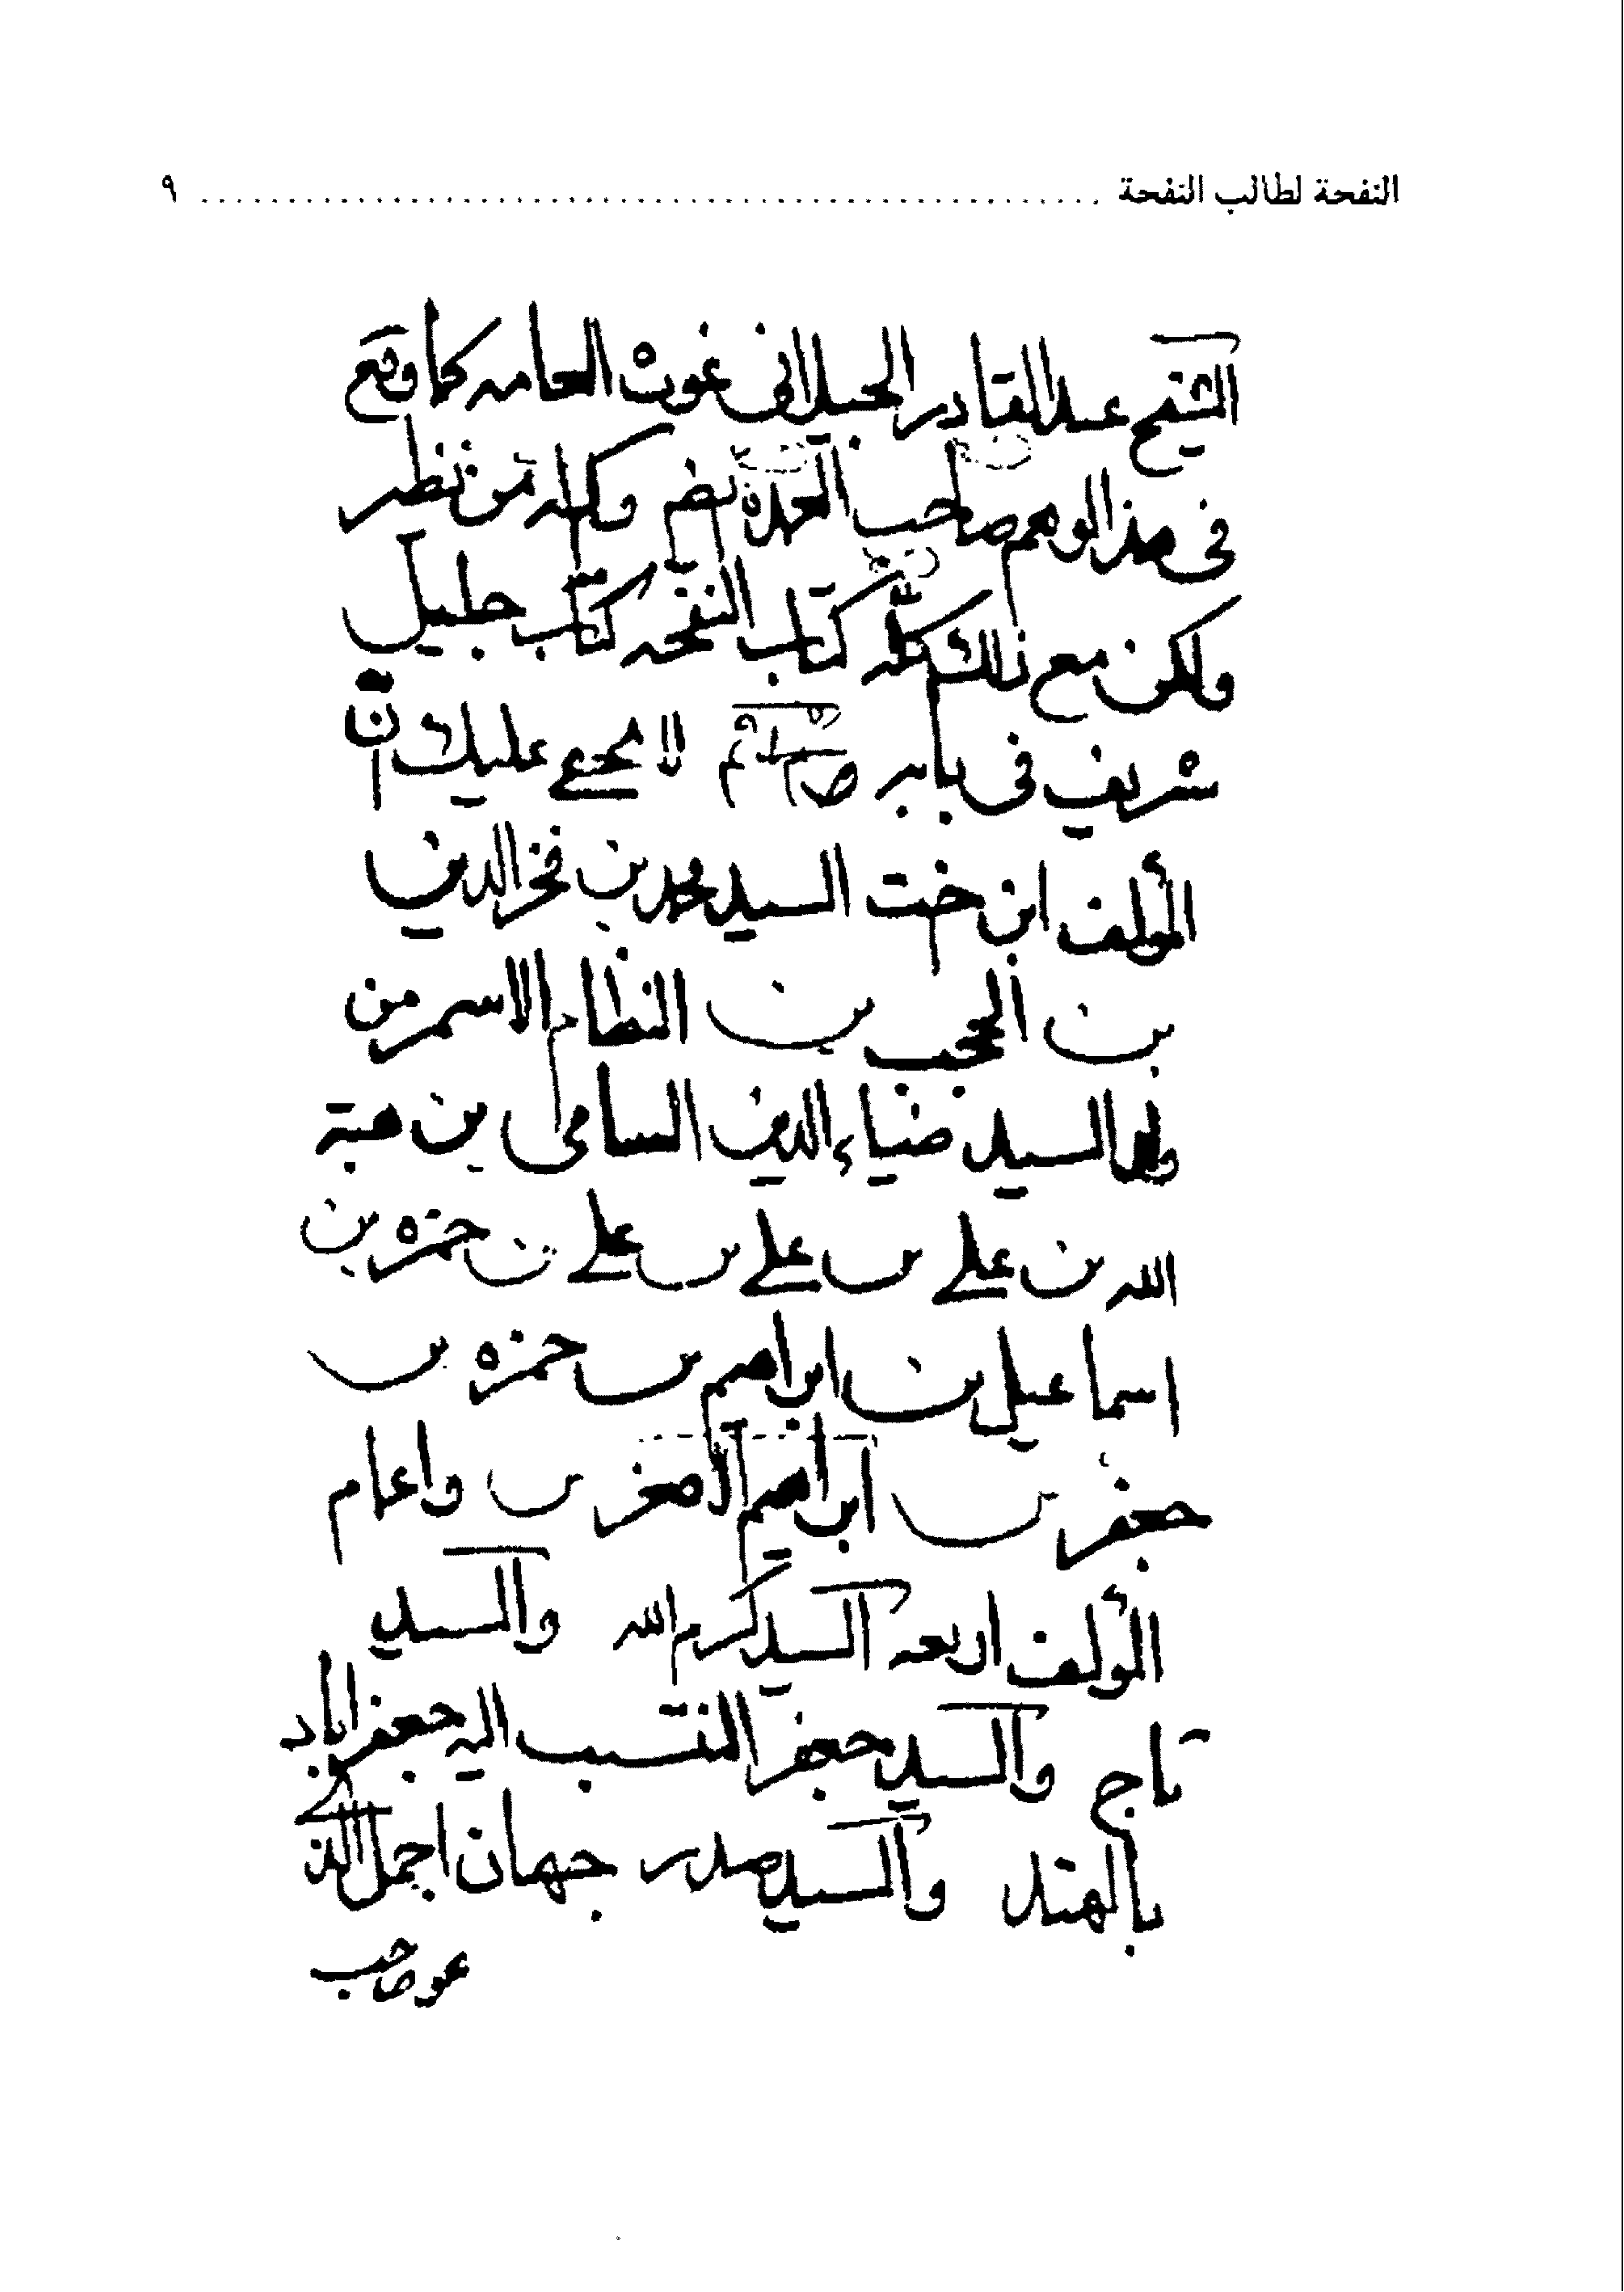 النفحة لطالب النفحة ........................................ ٩
الشيخ عبد القادر الجيلانى غوث العامه كما وقع
فى هذا الوهم صاحب العمدة وكم له من نظير
ولكن مع ذلك كله كتاب النفحه كتاب جليل
شريف فى بابه لا يخفى عليك ان
المؤلف ابن اخت السيد محمد بن فخر الدين
بن بن النظام الاسمر من
السيد ضياء الدين السامى بن هبة
الله بن على بن على بن على بن حمزه بن
اسماعيل بن ابراهيم بن حمزه بن
جعفر بن ابراهيم الاصغر واعمام
المؤلف اربعه السيد كرم الله والسيد
تاج والسيد جعفر المنتسب اليه جعفر اباد
بالهند والسيد صدر جهان اجمل